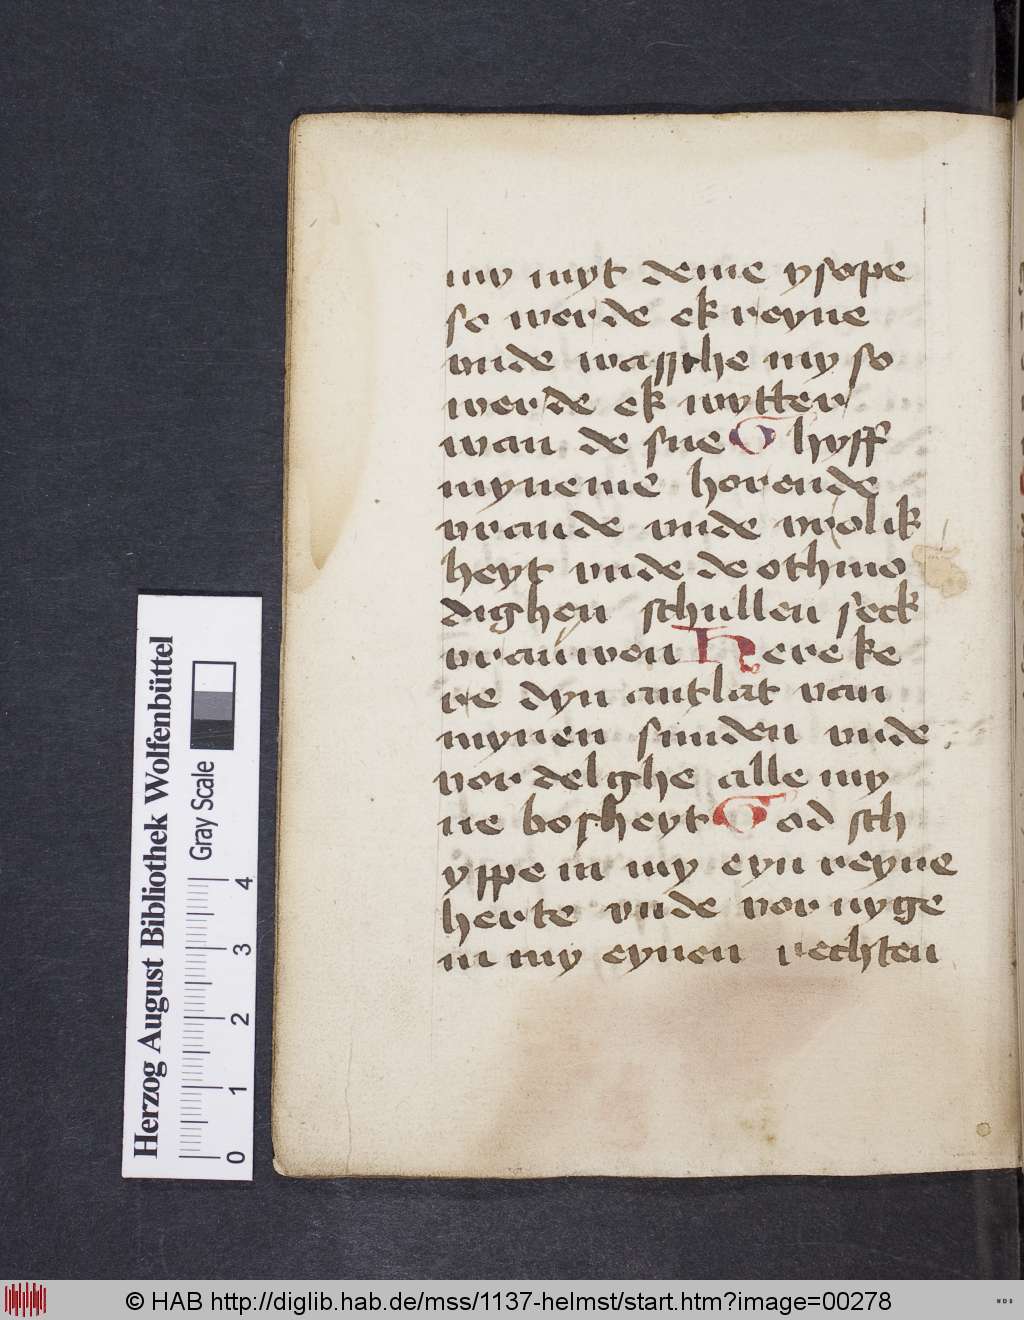 my myt deme ysope
so werde ek reyne
vnde wassche my so
werde ek wytter
wan de sne Ghyff
myneme horende
vraude vnde vrolik
heyt vnde de othmo
dighen schullen seck
vrauwen Here ke
re dyn antlat van
mynen sunden vnde
vor delghe alle my
ne bosheyt God sch
yppe in my eyn reyne
herte vnde vor nyge
in my eynen rechten
Herzog August Bibliothek Wolfenbüttel
Gray Scale
0 1 2 3 4
© HAB http://diglib.hab.de/mss/1137-helmst/start.htm?image=00278